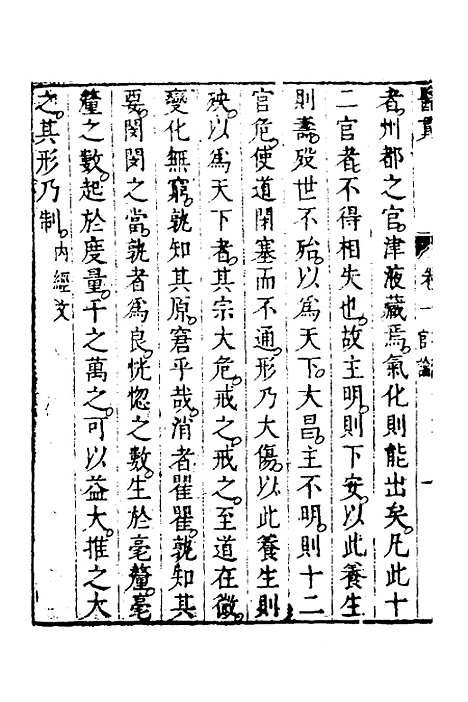 醫貫　卷一　官論　一
者。州都之官。津液藏焉。氣化則能出矣。凡此十
二官者。不得相失也。故主明。則下安。以此養生
則壽。歿世不殆。以爲天下。大昌。主不明。則十二
官危。使道閉塞而不通。形乃大傷。以此養生則
殃。以爲天下者。其宗大危。戒之。戒之。至道在微。
變化無窮。孰知其原。窘乎哉。消者瞿瞿。孰知其
要。閔閔之當。孰者爲良。恍惚之數。生於毫釐。毫
釐之數。起於度量。千之萬之。可以益大。推之大
之。其形乃制。內經文